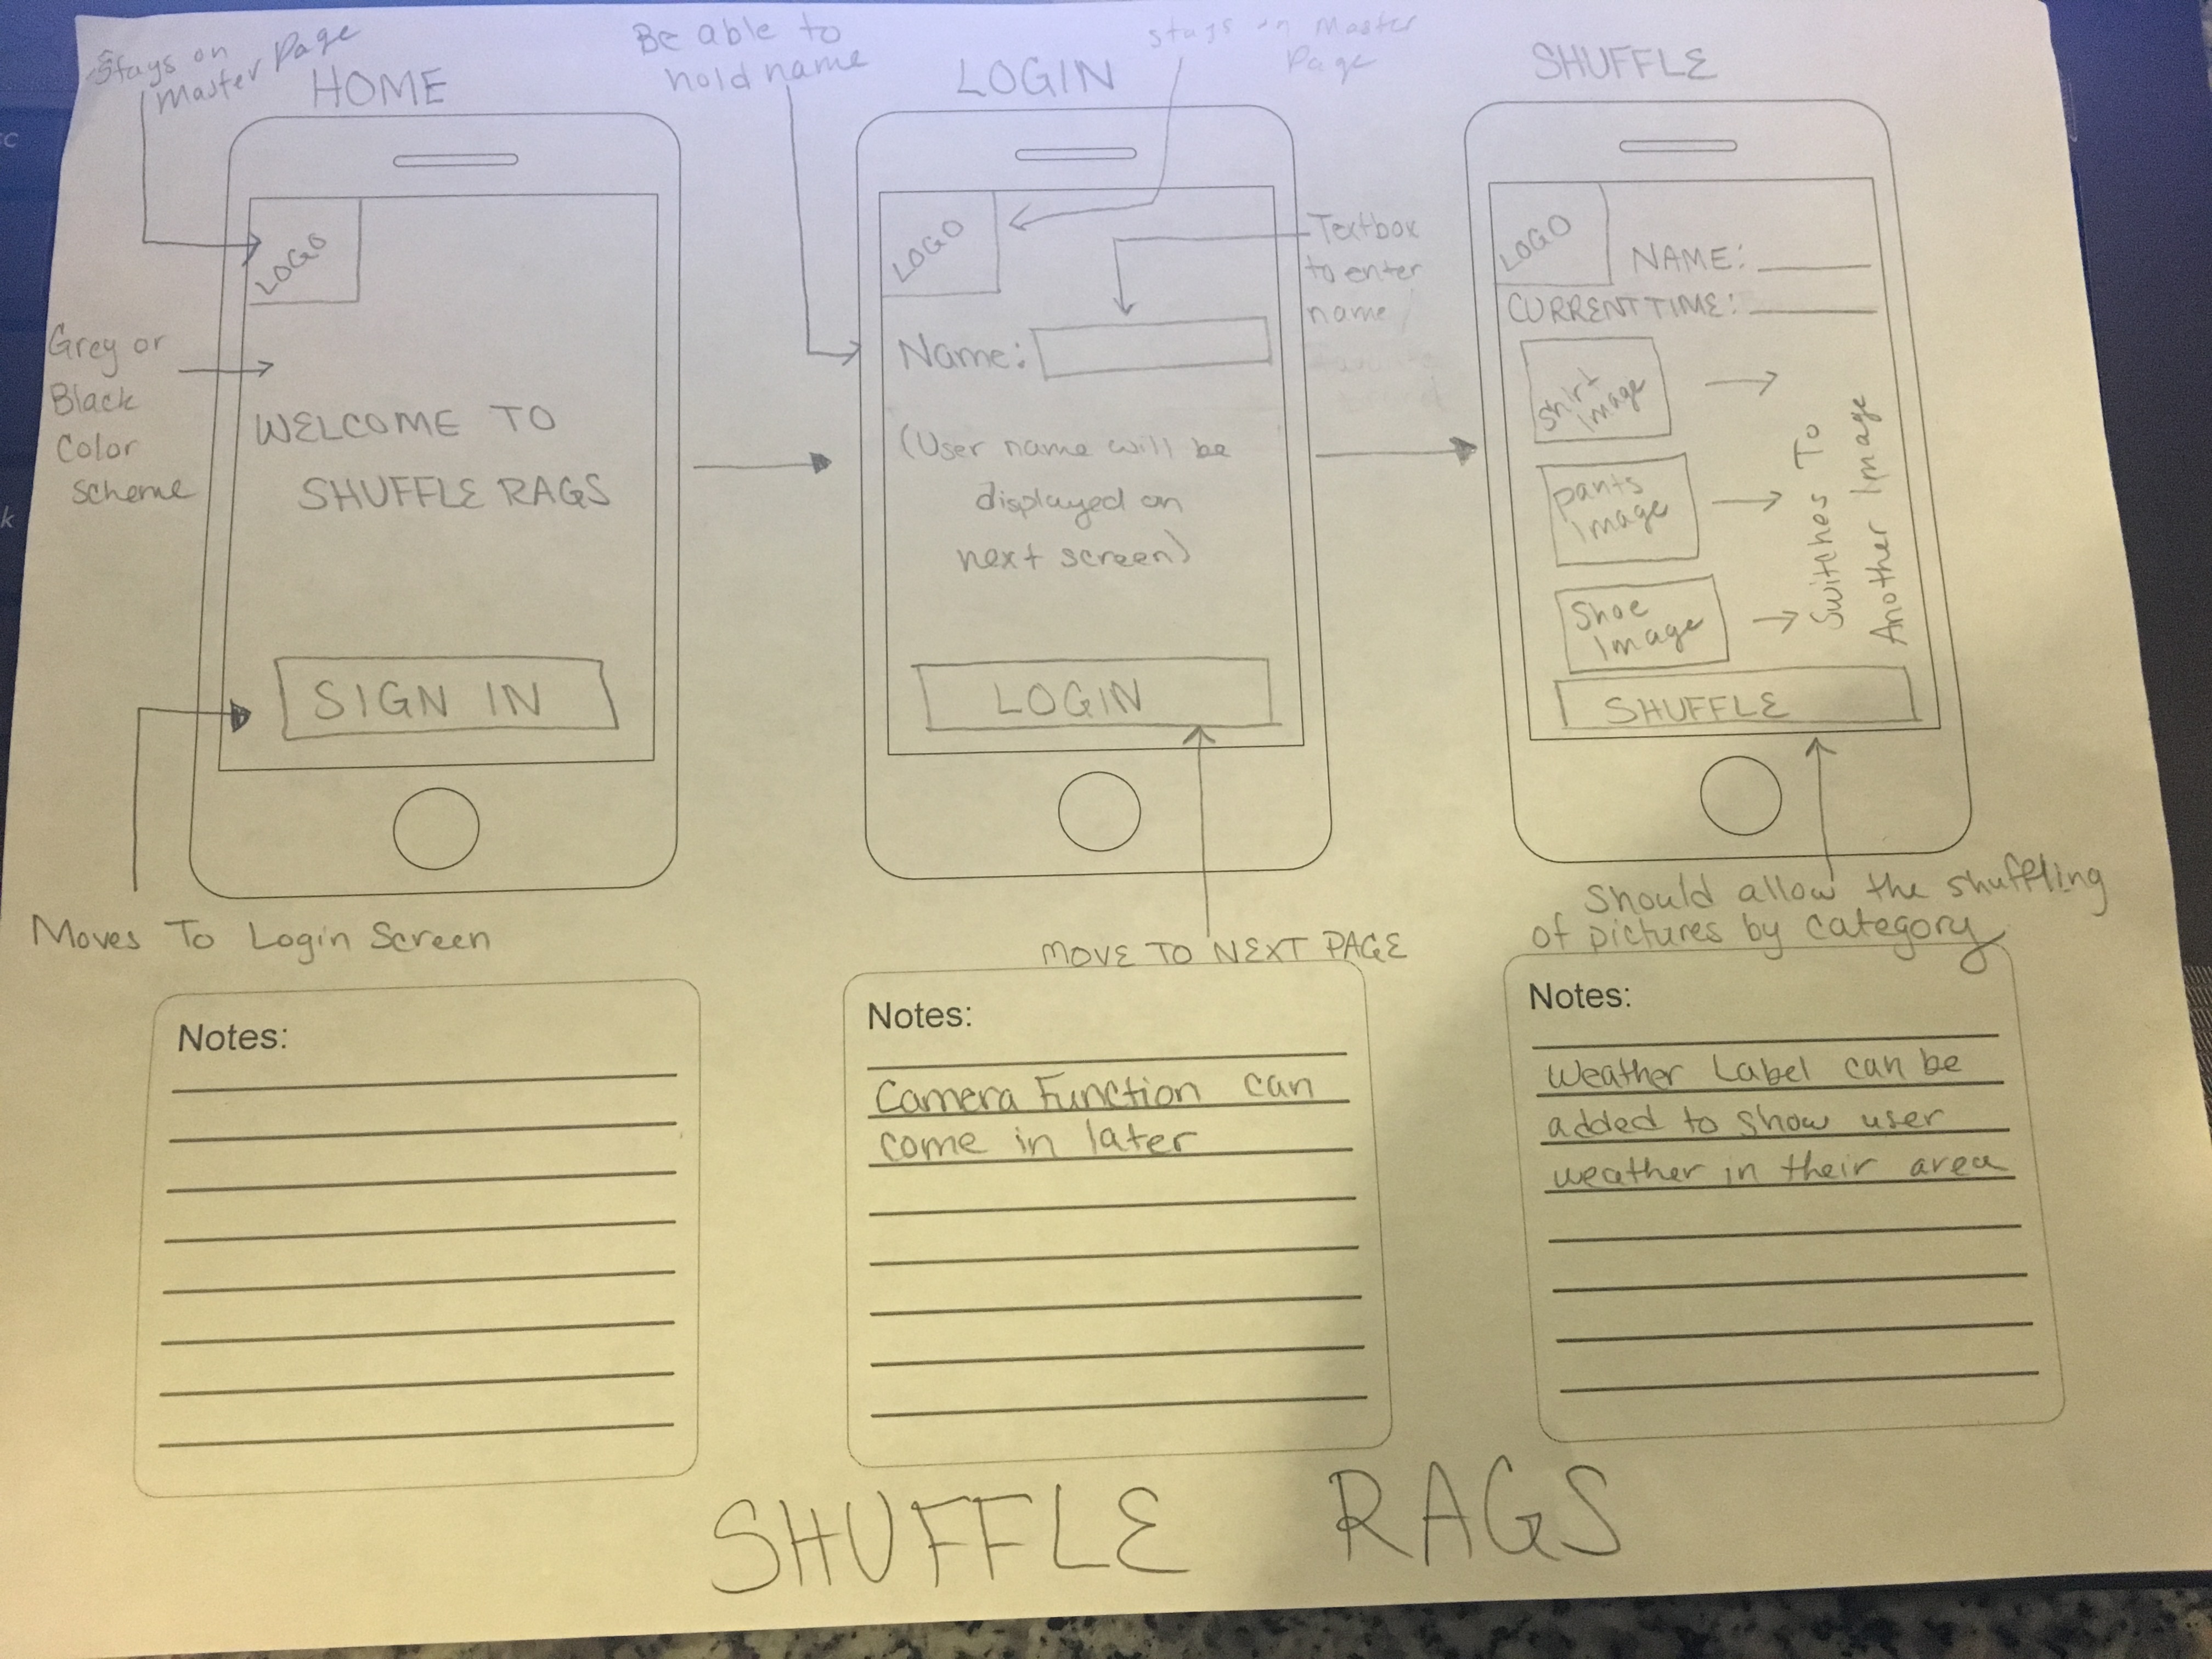 Stays on
Master Page
HOME
Grey or
Black
Color
scheme
LOGO
WELCOME TO
SHUFFLE RAGS
SIGN IN
Moves To Login Screen
Notes:
Be able to
hold name
LOGIN
stays on Master
Page
LOGO
Name:
Textbox
to enter
name
(User name will be
displayed on
next screen)
LOGIN
MOVE TO NEXT PAGE
Notes:
Camera Function can
come in later
SHUFFLE
LOGO
NAME:
CURRENT TIME:
Shirt
image
pants
image
Shoe
image
Switches To
Another Image
SHUFFLE
Should allow the shuffling
of pictures by category
Notes:
Weather Label can be
added to show user
weather in their area
SHUFFLE RAGS